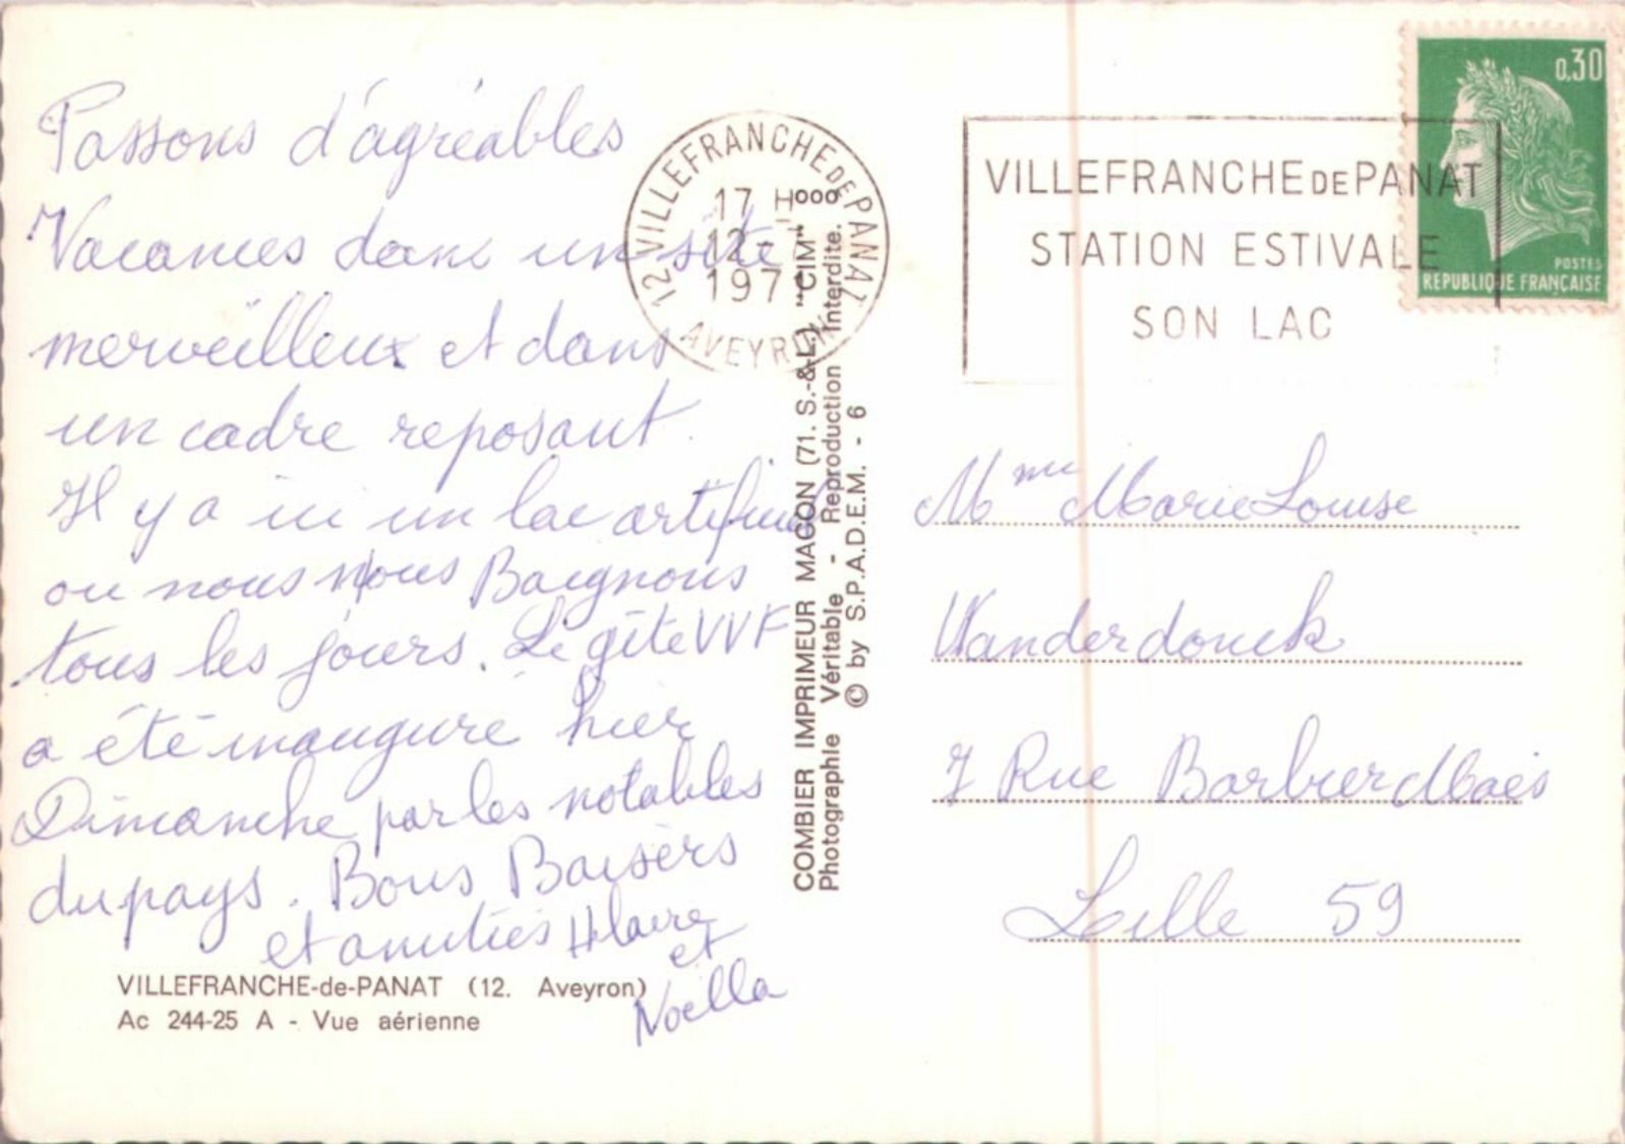 Passons d'agréables
Vacances dans un site
merveilleux et dans
un cadre reposant.
Il y a ici un lac artificiel
ou nous nous Baignons
tous les jours. Le gîte VVF
a été inaugure hier
Dimanche par les notables
du pays. Bons Baisers
et amitiés Hilaire
et
Noëlla
VILLEFRANCHE-de-PANAT (12. Aveyron)
Ac 244-25 A - Vue aérienne
12 VILLEFRANCHE DE PANAT
17 H000
12 - 7
1971
AVEYRON
COMBIER IMPRIMEUR MACON (71. S.-&-L.) "CIM"
Photographie Véritable - Reproduction Interdite.
© by S.P.A.D.E.M. - 6
VILLEFRANCHE DE PANAT
STATION ESTIVALE
SON LAC
0,30
POSTES
REPUBLIQUE FRANÇAISE
Mme Marie Louise
Vanderdonck
7 Rue Barbier Maës
Lille 59